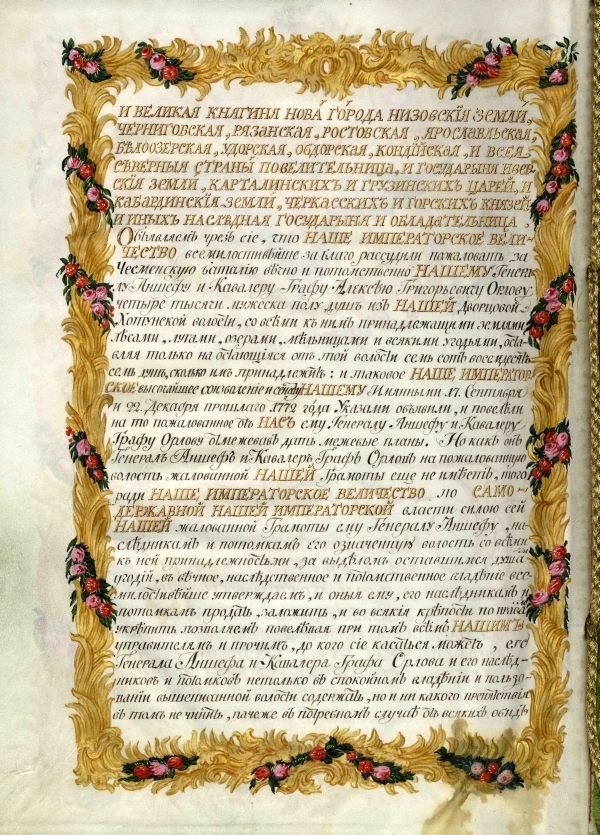 И ВЕЛИКАЯ КНЯГИНЯ НОВА ГОРОДА НИЗОВСКІЯ ЗЕМЛИ,
ЧЕРНИГОВСКАЯ, РЯЗАНСКАЯ, РОСТОВСКАЯ, ЯРОСЛАВЛЬСКАЯ,
БѢЛОЗЕРСКАЯ, УДОРСКАЯ, ОБДОРСКАЯ, КОНДІЙСКАЯ, И ВСЕЯ
СѢВЕРНЫЯ СТРАНЫ ПОВЕЛИТЕЛЬНИЦА, И ГОСУДАРЫНЯ ИВЕР-
СКІЯ ЗЕМЛИ, КАРТАЛИНСКИХЪ И ГРУЗИНСКИХЪ ЦАРЕЙ, И
КАБАРДИНСКІЯ ЗЕМЛИ, ЧЕРКАССКИХЪ И ГОРСКИХЪ КНЯЗЕЙ
И ИНЫХЪ НАСЛѢДНАЯ ГОСУДАРЫНЯ И ОБЛАДАТЕЛЬНИЦА,
Объявляемъ чрезъ сіе, что НАШЕ ИМПЕРАТОРСКОЕ ВЕЛИ-
ЧЕСТВО всемилостивѣйше за благо разсудили пожаловать за
Чесменскую баталію вѣчно и потомственно НАШЕМУ Генера-
лу Аншефу и Кавалеру Графу Алексѣю Григорьевичу Орлову
четыре тысячи мужеска полу душъ изъ НАШЕЙ Дворцовой
Хотунской волости, со всѣми къ нимъ принадлежащими землями
лѣсами, лугами, озерами, мѣльницами и всякими угодьями, оста-
вляя только на остающіяся отъ той волости семь сотъ восемдесятъ
семь душъ, сколько имъ принадлежитъ: и таковое НАШЕ ИМПЕРАТОР-
СКОЕ высочайшее соизволеніе и НАШЕМУ Имянными 17. Сентября
и 22. Декабря прошлаго 1772 года Указами объявили, и повелѣли
на то пожалованное отъ НАСЪ ему Генералу Аншефу и Кавалеру
Графу Орлову отмежевавъ дать межевые планы. Но какъ онъ
Генералъ Аншефъ и Кавалеръ Графъ Орловъ на пожалованную
волость жалованной НАШЕЙ Грамоты еще не имѣетъ, того
ради НАШЕ ИМПЕРАТОРСКОЕ ВЕЛИЧЕСТВО по САМО-
ДЕРЖАВНОЙ НАШЕЙ ИМПЕРАТОРСКОЙ власти силою сей
НАШЕЙ жалованной Грамоты ему Генералу Аншефу, на-
слѣдникамъ и потомкамъ его означенную волость со всѣми
къ ней принадлежностьми, за выдѣломъ оставшимся душамъ
угодій, въ вѣчное, наслѣдственное и потомственное владѣніе все-
милостивѣйше утверждаемъ, и оныя ему, его наслѣдникамъ и
потомкамъ продать, заложить, и во всякія крѣпости по
укрѣпить позволяемъ повелѣвая при томъ всѣмъ НАШИМЪ
управителямъ и прочимъ, до кого сіе касаться можетъ, его
Генерала Аншефа и Кавалера Графа Орлова и его наслѣд-
никовъ и потомковъ нетолько въ спокойномъ владѣніи и пользо-
ваніи вышеписанной волости содержать, но и ни какого препятствія
въ томъ не чинить, паче же въ потребномъ случаѣ отъ всякихъ обидъ